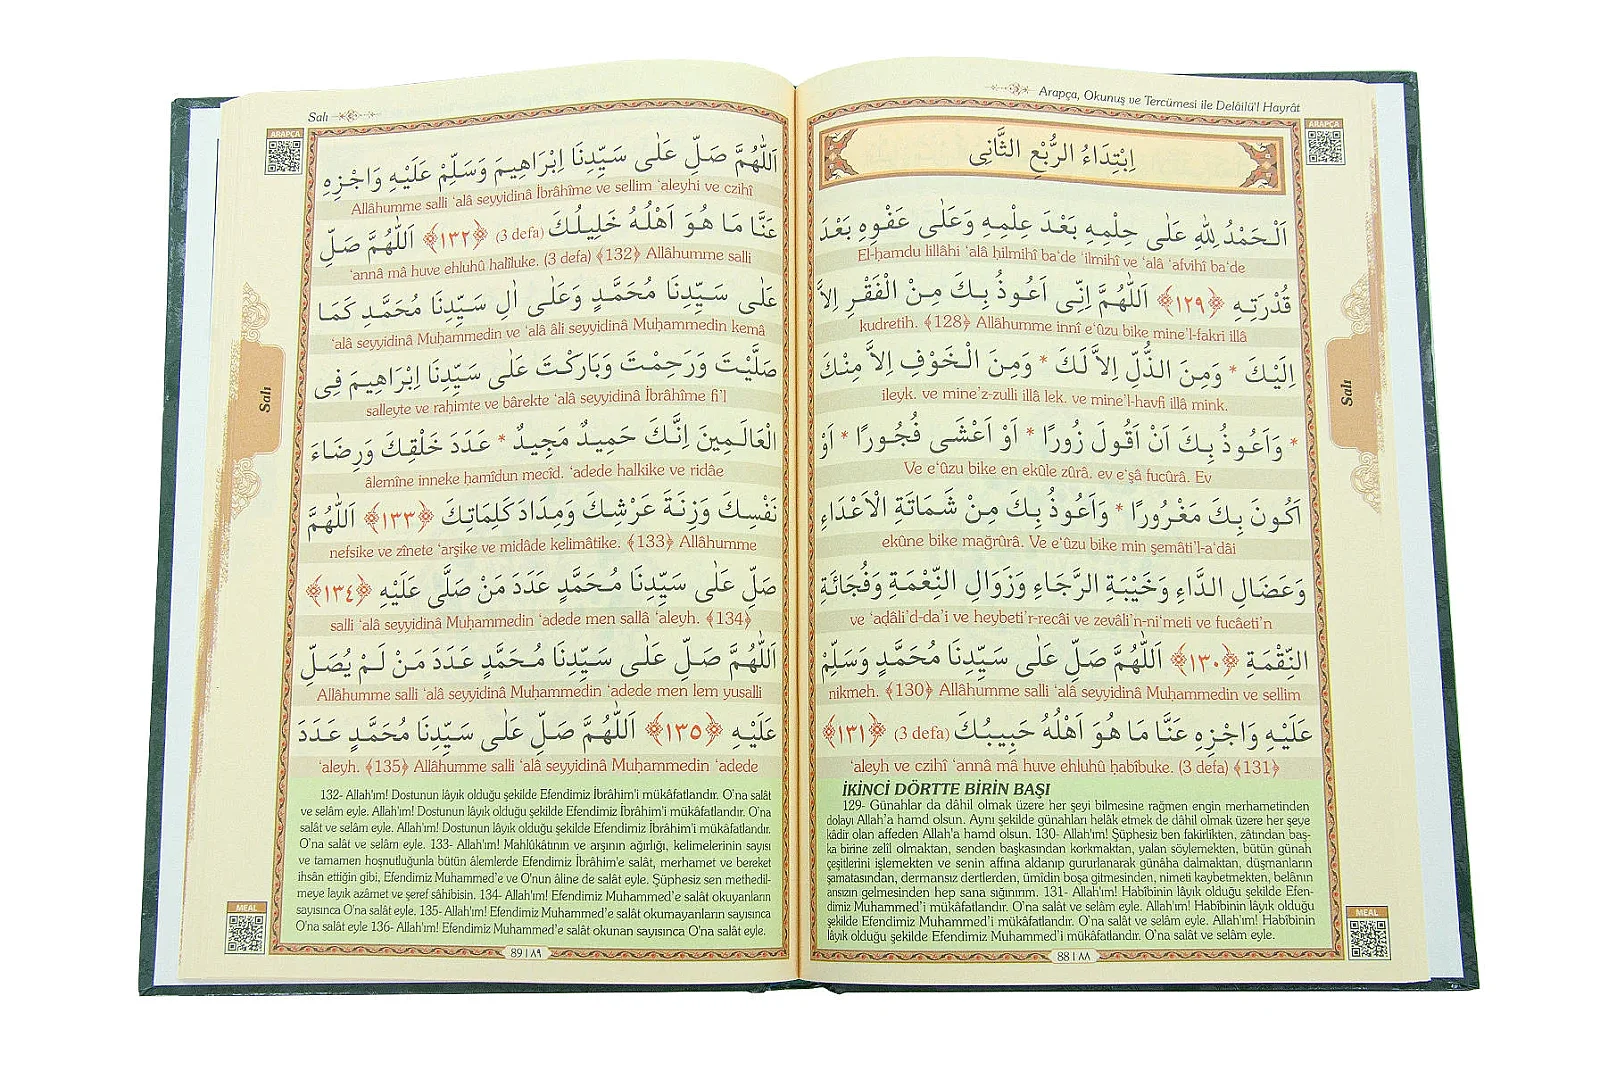 Arapça, Okunuş ve Tercümesi ile Delâilü'l Hayrât
ARAPÇA
اِبْتِدَاءُ الرُّبْعِ الثَّانِى
اَلْحَمْدُ لِلّٰهِ عَلٰى حِلْمِهِ بَعْدَ عِلْمِهِ وَعَلٰى عَفْوِهِ بَعْدَ
El-ḥamdu lillâhi ‘alâ ḥilmihî ba‘de ‘ilmihî ve ‘alâ ‘afvihî ba‘de
قُدْرَتِهِ ﴿١٢٩﴾ اَللّٰهُمَّ اِنِّى اَعُوذُ بِكَ مِنْ الْفَقْرِ اِلاَّ
kudretih. ﴾128﴿ Allâhumme innî e‘ûzu bike mine'l-fakri illâ
اِلَيْكَ * وَمِنَ الذُّلِّ اِلاَّ لَكَ * وَمِنَ الْخَوْفِ اِلاَّ مِنْكَ
ileyk. ve mine'z-zulli illâ lek. ve mine'l-havfi illâ mink.
* وَاَعُوذُ بِكَ اَنْ اَقُولَ زُورًا * اَوْ اَعْشٰى فُجُورًا * اَوْ
Ve e‘ûzu bike en ekûle zûrâ. ev e‘şâ fucûrâ. Ev
اَكُونَ بِكَ مَغْرُورًا * وَاَعُوذُ بِكَ مِنْ شَمَاتَةِ الْاَعْدَاءِ
ekûne bike mağrûrâ. Ve e‘ûzu bike min şemâti'l-a‘dâi
وَعَضَالِ الدَّاءِ وَخَيْبَةِ الرَّجَاءِ وَزَوَالِ النِّعْمَةِ وَفُجَائَةِ
ve ‘aḍâli'd-da'i ve heybeti'r-recâi ve zevâli'n-ni'meti ve fucâeti'n
النِّقْمَةِ ﴿١٣٠﴾ اَللّٰهُمَّ صَلِّ عَلٰى سَيِّدِنَا مُحَمَّدٍ وَسَلِّمْ
nikmeh. ﴾130﴿ Allâhumme salli ‘alâ seyyidinâ Muḥammedin ve sellim
عَلَيْهِ وَاجْزِهِ عَنَّا مَا هُوَ اَهْلُهُ حَبِيبُكَ (3 defa) ﴿١٣١﴾
‘aleyh ve czihî ‘annâ mâ huve ehluhû ḥabîbuke. (3 defa) ﴾131﴿
İKİNCİ DÖRTTE BİRİN BAŞI
129- Günahlar da dâhil olmak üzere her şeyi bilmesine rağmen engin merhametinden
dolayı Allah'a hamd olsun. Aynı şekilde günahları helâk etmek de dâhil olmak üzere her şeye
kâdir olan affeden Allah'a hamd olsun. 130- Allah'ım! Şüphesiz ben fakirlikten, zâtından baş-
ka birine zelîl olmaktan, senden başkasından korkmaktan, yalan söylemekten, bütün günah
çeşitlerini işlemekten ve senin affına aldanıp gururlanarak günâha dalmaktan, düşmanların
şamatasından, dermansız dertlerden, ümîdin boşa gitmesinden, nimeti kaybetmekten, belânın
ansızın gelmesinden hep sana sığınırım. 131- Allah'ım! Habîbinin lâyık olduğu şekilde Efen-
dimiz Muhammed'i mükâfatlandır. O'na salât ve selâm eyle. Allah'ım! Habîbinin lâyık olduğu
şekilde Efendimiz Muhammed'i mükâfatlandır. O'na salât ve selâm eyle. Allah'ım! Habîbinin
lâyık olduğu şekilde Efendimiz Muhammed'i mükâfatlandır. O'na salât ve selâm eyle.
Salı
MEAL
88 | ٨٨
Salı
ARAPÇA
اَللّٰهُمَّ صَلِّ عَلٰى سَيِّدِنَا اِبْرَاهِيمَ وَسَلِّمْ عَلَيْهِ وَاجْزِهِ
Allâhumme salli ‘alâ seyyidinâ İbrâhîme ve sellim ‘aleyhi ve czihî
عَنَّا مَا هُوَ اَهْلُهُ خَلِيلُكَ (3 defa) ﴿١٣٢﴾ اَللّٰهُمَّ صَلِّ
‘annâ mâ huve ehluhû halîluke. (3 defa) ﴾132﴿ Allâhumme salli
عَلٰى سَيِّدِنَا مُحَمَّدٍ وَعَلٰى اٰلِ سَيِّدِنَا مُحَمَّدٍ كَمَا
‘alâ seyyidinâ Muḥammedin ve ‘alâ âli seyyidinâ Muḥammedin kemâ
صَلَّيْتَ وَرَحِمْتَ وَبَارَكْتَ عَلٰى سَيِّدِنَا اِبْرَاهِيمَ فِى
salleyte ve raḥimte ve bârekte ‘alâ seyyidinâ İbrâhîme fi'l
الْعَالَمِينَ اِنَّكَ حَمِيدٌ مَجِيدٌ * عَدَدَ خَلْقِكَ وَرِضَاءَ
âlemîne inneke ḥamîdun mecîd. ‘adede halkike ve ridâe
نَفْسِكَ وَزِنَةَ عَرْشِكَ وَمِدَادَ كَلِمَاتِكَ ﴿١٣٣﴾ اَللّٰهُمَّ
nefsike ve zînete ‘arşike ve midâde kelimâtike. ﴾133﴿ Allâhumme
صَلِّ عَلٰى سَيِّدِنَا مُحَمَّدٍ عَدَدَ مَنْ صَلَّى عَلَيْهِ ﴿١٣٤﴾
salli ‘alâ seyyidinâ Muḥammedin ‘adede men sallâ ‘aleyh. ﴾134﴿
اَللّٰهُمَّ صَلِّ عَلٰى سَيِّدِنَا مُحَمَّدٍ عَدَدَ مَنْ لَمْ يُصَلِّ
Allâhumme salli ‘alâ seyyidinâ Muḥammedin ‘adede men lem yusalli
عَلَيْهِ ﴿١٣٥﴾ اَللّٰهُمَّ صَلِّ عَلٰى سَيِّدِنَا مُحَمَّدٍ عَدَدَ
‘aleyh. ﴾135﴿ Allâhumme salli ‘alâ seyyidinâ Muḥammedin ‘adede
132- Allah'ım! Dostunun lâyık olduğu şekilde Efendimiz İbrâhim'i mükâfatlandır. O'na salât
ve selâm eyle. Allah'ım! Dostunun lâyık olduğu şekilde Efendimiz İbrâhim'i mükâfatlandır. O'na
salât ve selâm eyle. Allah'ım! Dostunun lâyık olduğu şekilde Efendimiz İbrâhim'i mükâfatlandır.
O'na salât ve selâm eyle. 133- Allah'ım! Mahlûkâtının ve arşının ağırlığı, kelimelerinin sayısı
ve tamamen hoşnutluğunla bütün âlemlerde Efendimiz İbrâhim'e salât, merhamet ve bereket
ihsân ettiğin gibi, Efendimiz Muhammed'e ve O'nun âline de salât eyle. Şüphesiz sen methedil-
meye layık azâmet ve şeref sâhibisin. 134- Allah'ım! Efendimiz Muhammed'e salât okuyanların
sayısınca O'na salât eyle. 135- Allah'ım! Efendimiz Muhammed'e salât okumayanların sayısınca
O'na salât eyle 136- Allah'ım! Efendimiz Muhammed'e salât okunan sayısınca O'na salât eyle.
Salı
MEAL
89 | ٨٩